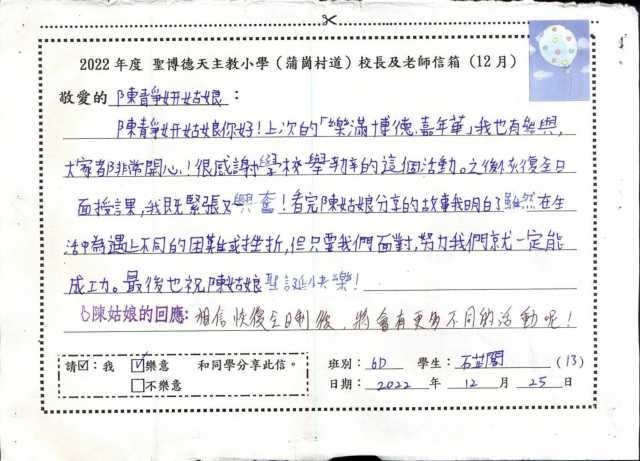 2022 年度 聖博德天主教小學（蒲崗村道）校長及老師信箱（12月）
敬愛的 陳靜妍姑娘：
陳靜妍姑娘你好！上次的「樂滿博德嘉年華」我也有參與，
大家都非常開心！很感謝學校舉辦的這個活動。之後恢復全日
面授課，我既緊張又興奮！看完陳姑娘分享的故事我明白了雖然在生
活中為遇上不同的困難或挫折，但只要我們面對，努力我們就一定能
成功。最後也祝陳姑娘聖誕快樂！
陳姑娘的回應：相信恢復全日制後，將會有更多不同的活動呢！
請☑：我 ☑樂意 和同學分享此信。
□不樂意
班別：6D 學生：石芷 (13)
日期：2022 年 12 月 25 日